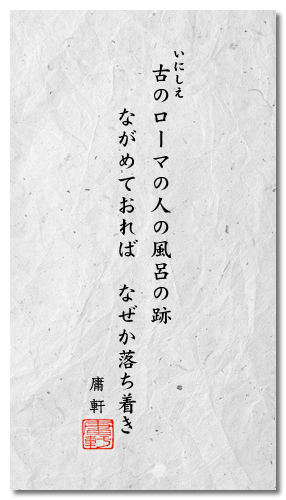 いにしえ
古のローマの人の風呂の跡
ながめておれば　なぜか落ち着き
庸軒
庸軒